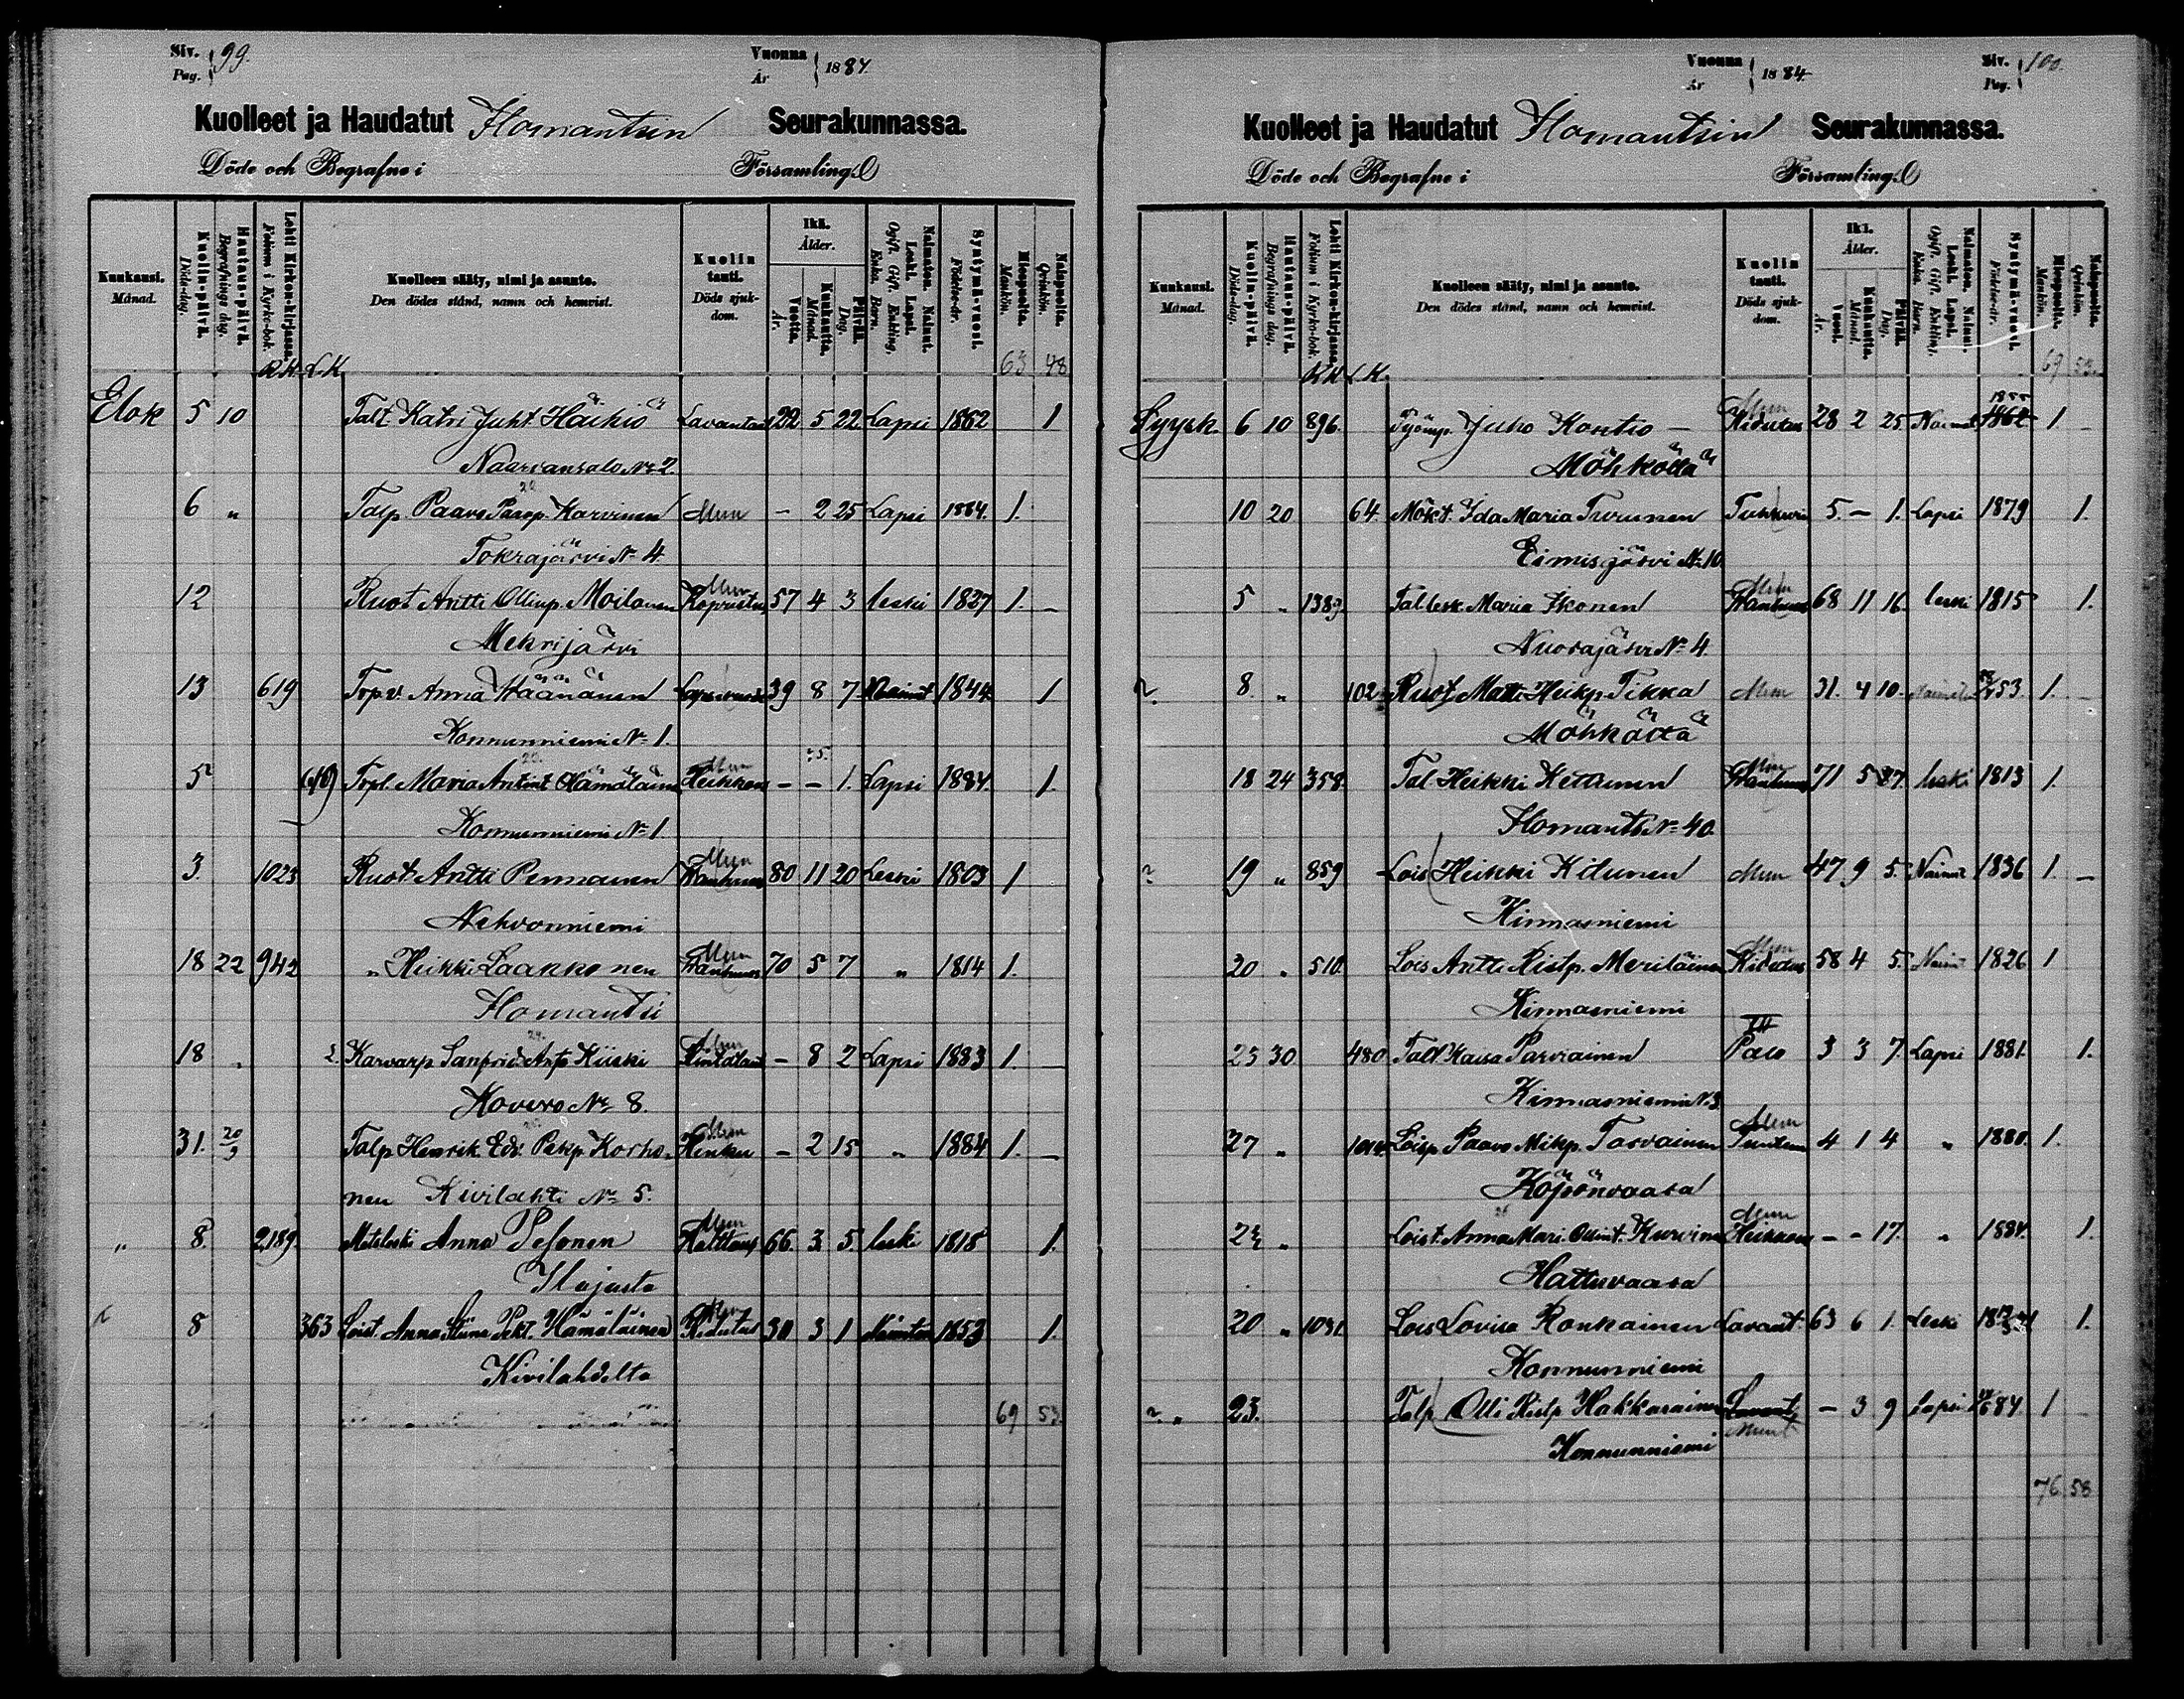 Siv. Pag. } 99.
Vuonna År } 1884.
Kuolleet ja Haudatut Ilomantsin Seurakunnassa.
Döde och Begrafne i Församling.
Kuukausi. Månad.
Kuolin-päivä. Döds-dag.
Hautaus-päivä. Begrafnings dag.
Lehti Kirkon-kirjassa. Folium i Kyrko-bok.
Kuolleen sääty, nimi ja asunto. Den dödes stånd, namn och hemvist.
Kuolin tauti. Döds sjukdom.
Ikä. Ålder.
Vuotta. År.
Kuukautta. Månad.
Päivää. Dag.
Naimaton. Nainut. Leski. Lapsi. Ogift. Gift. Enkling. Enka. Barn.
Syntymä-vuosi. Födelse-år.
Miespuolta. Mankön.
Naispuolta. Qvinkön.
R.K. L.K. 63 48
Elok 5 10 Talt. Katri Juht. Häikiö Lavantau 22 5 22 Lapsi 1862 1
Naarvansalo No 2.
6 " Talp. Paavo Paavop. Karvinen Muu - 2 25 Lapsi 1884. 1.
Tokrajärvi No 4.
12 Ruot Antti Ollinp. Moilanen Muu 57 4 3 leski 1827 1. -
Mekrijärvi
13 619 Torpv. Anna Väänänen 39 8 7 Nainut 1844 1
Konnunniemi No 1.
5 Trpl. Maria Antint Hämäläinen Muu Heikkous - - 1. Lapsi 1884. 1.
Konnunniemi No 1.
3 1023 Ruot. Antti Pennanen Muu Vanhuus 80 11 20 Leski 1803 1
Nehvonniemi
18 22 942 " Heikki Laakkonen Muu Vanhuus 70 5 7 " 1814 1.
Ilomantsi
18 " 2. Karvarp Sanfrid Antp Kiiski Muu - 8 2 Lapsi 1883 1. -
Kovero No 8.
31. 20/9 Talp Henrik Ed. Pekp. Korho- Muu - 2 15 " 1884 1. -
nen Kivilahti No 5.
" 8. 2189. Mäkleski Anna Pesonen Muu 66. 3. 5. leski 1818 1.
Ilajasta
8 363 Loist. Anna Stiina Pekt. Hämäläinen Muu Kidutus 30 3 1 Naimton 1853 1.
Kivilahdelta
69 53.
Vuonna År } 1884.
Siv. Pag. } 100
Kuolleet ja Haudatut Ilomantsin Seurakunnassa.
Döde och Begrafne i Församling.
Kuukausi. Månad.
Kuolin-päivä. Döds-dag.
Hautaus-päivä. Begrafnings dag.
Lehti Kirkon-kirjassa. Folium i Kyrko-bok.
Kuolleen sääty, nimi ja asunto. Den dödes stånd, namn och hemvist.
Kuolin tauti. Döds sjukdom.
Ikä. Ålder.
Vuosi. År.
Kuukautta. Månad.
Päivää. Dag.
Naimaton. Leski. Lapsi. Ogift. Gift. Enkling. Enka. Barn.
Syntymä-vuosi. Födelse-år.
Miespuolta. Mankön.
Naispuolta. Qvinkön.
R.K. L.K. 69 53.
1855
Syysk 6 10 896. Työmp. Juho Kontio - Muu Kidutus 28 2 25. Nainut 1862 1 -
Möhköllä
10 20 64. Mökt. Ida Maria Turunen Tuhkuri 5. - 1. Lapsi 1879 1.
Eimisjärvi No 10.
5 " 1389. Tallesk. Maria Ikonen Muu Vanhuus 68 11 16. leski 1815 1.
Nuorajärvi No 4.
8. " 102 Ruot Matti Heikp. Tikka Muu 31. 4 10. 53. 1.
Möhköltä
18 24 358. Tal. Heikki Ketonen Muu Vanhuus 71 5 27. leski 1813 1.
Ilomants No 40.
19 " 859 Lois Heikki Kitunen Muu 47 9 5. Nainut 1836 1. -
Kinnasniemi
20 " 510. Lois Antti Ristp. Meriläinen Muu Kidutus 58 4 5. Nainut 1826 1
Kinnasniemi
23 30 480 Talt Kaisa Parviainen 3 3 7. Lapsi 1881. 1.
Kinnasniemi No 3
27 " Loisp. Paavo Mikp. Tarvainen Muu 4 1 4 " 1880. 1.
Köpönvaara
" Loist. Anna Mari Ollint. Kurvinen Muu Heikkous - - 17. " 1884. 1.
Hattuvaara
20 " 1031. Lois Lovisa Ronkainen Lavant. 63 6 1. Leski 1.
Konnunniemi
" 23. Talp Olli Ristp Hakkarainen Lavant. Muut - 3 9 Lapsi 1
Konnunniemi
76 58